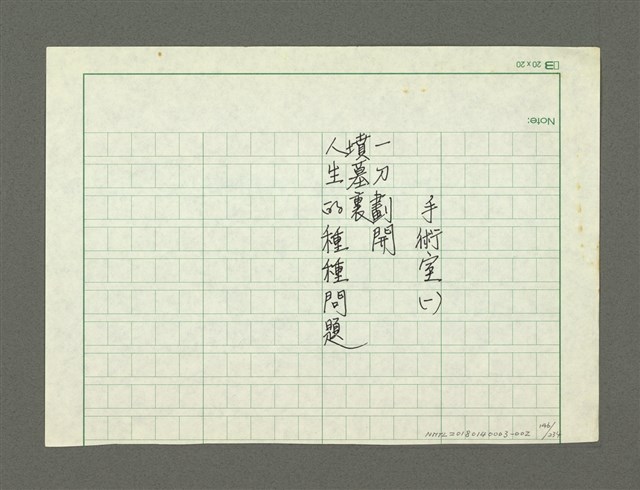 手術室(一)
一刀劃開
墳墓裏
人生的種種問題
20x20
Note:
NMTL20180140003-002
146/